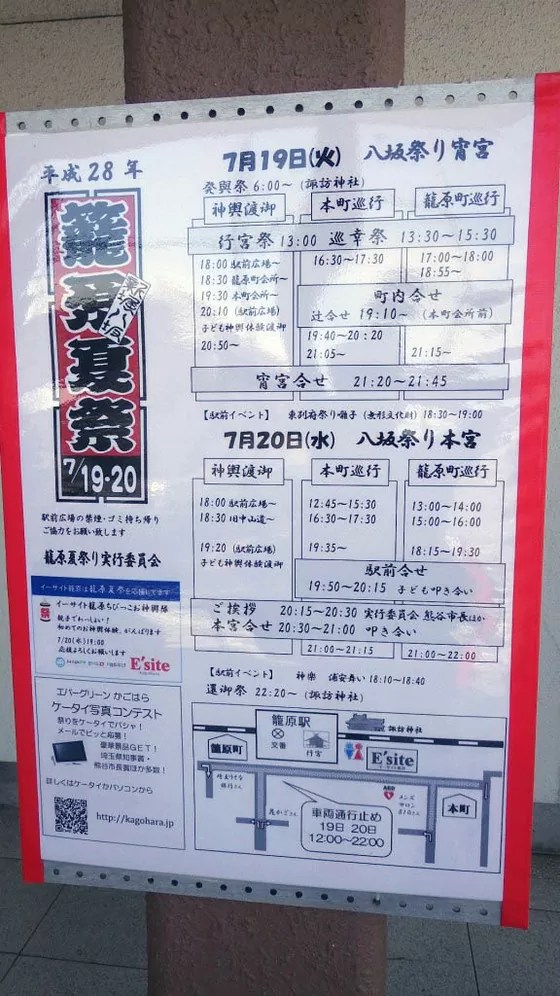 平成28年
籠原夏祭
7/19・20
駅前広場の禁煙・ゴミ持ち帰り
ご協力をお願い致します
籠原夏祭り実行委員会
イーサイト籠原は籠原夏祭を応援してます
イーサイト籠原ちびーこお神輿隊
親子でわっしょい!
初めてのお神輿体験、がんばります
7/20(水)19:00
応援よろしくお願いします
E'site
エバーグリーン かごはら
ケータイ写真コンテスト
祭りをケータイでパシャ!
メールでピッと応募!
豪華景品GET!
埼玉県知事賞・
熊谷市長賞ほか多数!
詳しくはケータイかパソコンから
http://kagohara.jp
7月19日(火) 八坂祭り宵宮
発輿祭 6:00~(諏訪神社)
神輿渡御 本町巡行 籠原町巡行
行宮祭 13:00 巡幸祭 13:30~15:30
18:00 駅前広場~ 16:30~17:30 17:00~18:00
18:30 籠原町会所~ 18:55~
19:30 本町会所~ 町内合せ
20:10 (駅前広場) 辻合せ 19:10~ (本町会所前)
子ども神輿体験渡御
20:50~ 19:40~20:20
21:05~ 21:15~
宵宮合せ 21:20~21:45
【駅前イベント】 東別府祭り囃子(無形文化財) 18:30~19:00
7月20日(水) 八坂祭り本宮
神輿渡御 本町巡行 籠原町巡行
18:00 駅前広場~ 12:45~15:30 13:00~14:00
18:30 旧中山道~ 16:30~17:30 15:00~16:00
19:20 (駅前広場) 19:35~ 18:15~19:30
子ども神輿体験渡御
駅前合せ
19:50~20:15 子ども叩き合い
ご挨拶 20:15~20:30 実行委員会 熊谷市長ほか
本宮合せ 20:30~21:00 叩き合い
21:00~21:15 21:00~22:00
【駅前イベント】 神楽 浦安舞い 18:10~18:40
還御祭 22:20~(諏訪神社)
籠原駅
交番 行宮
諏訪神社
籠原町
E'site
AED
本町
車両通行止め
19日 20日
12:00~22:00